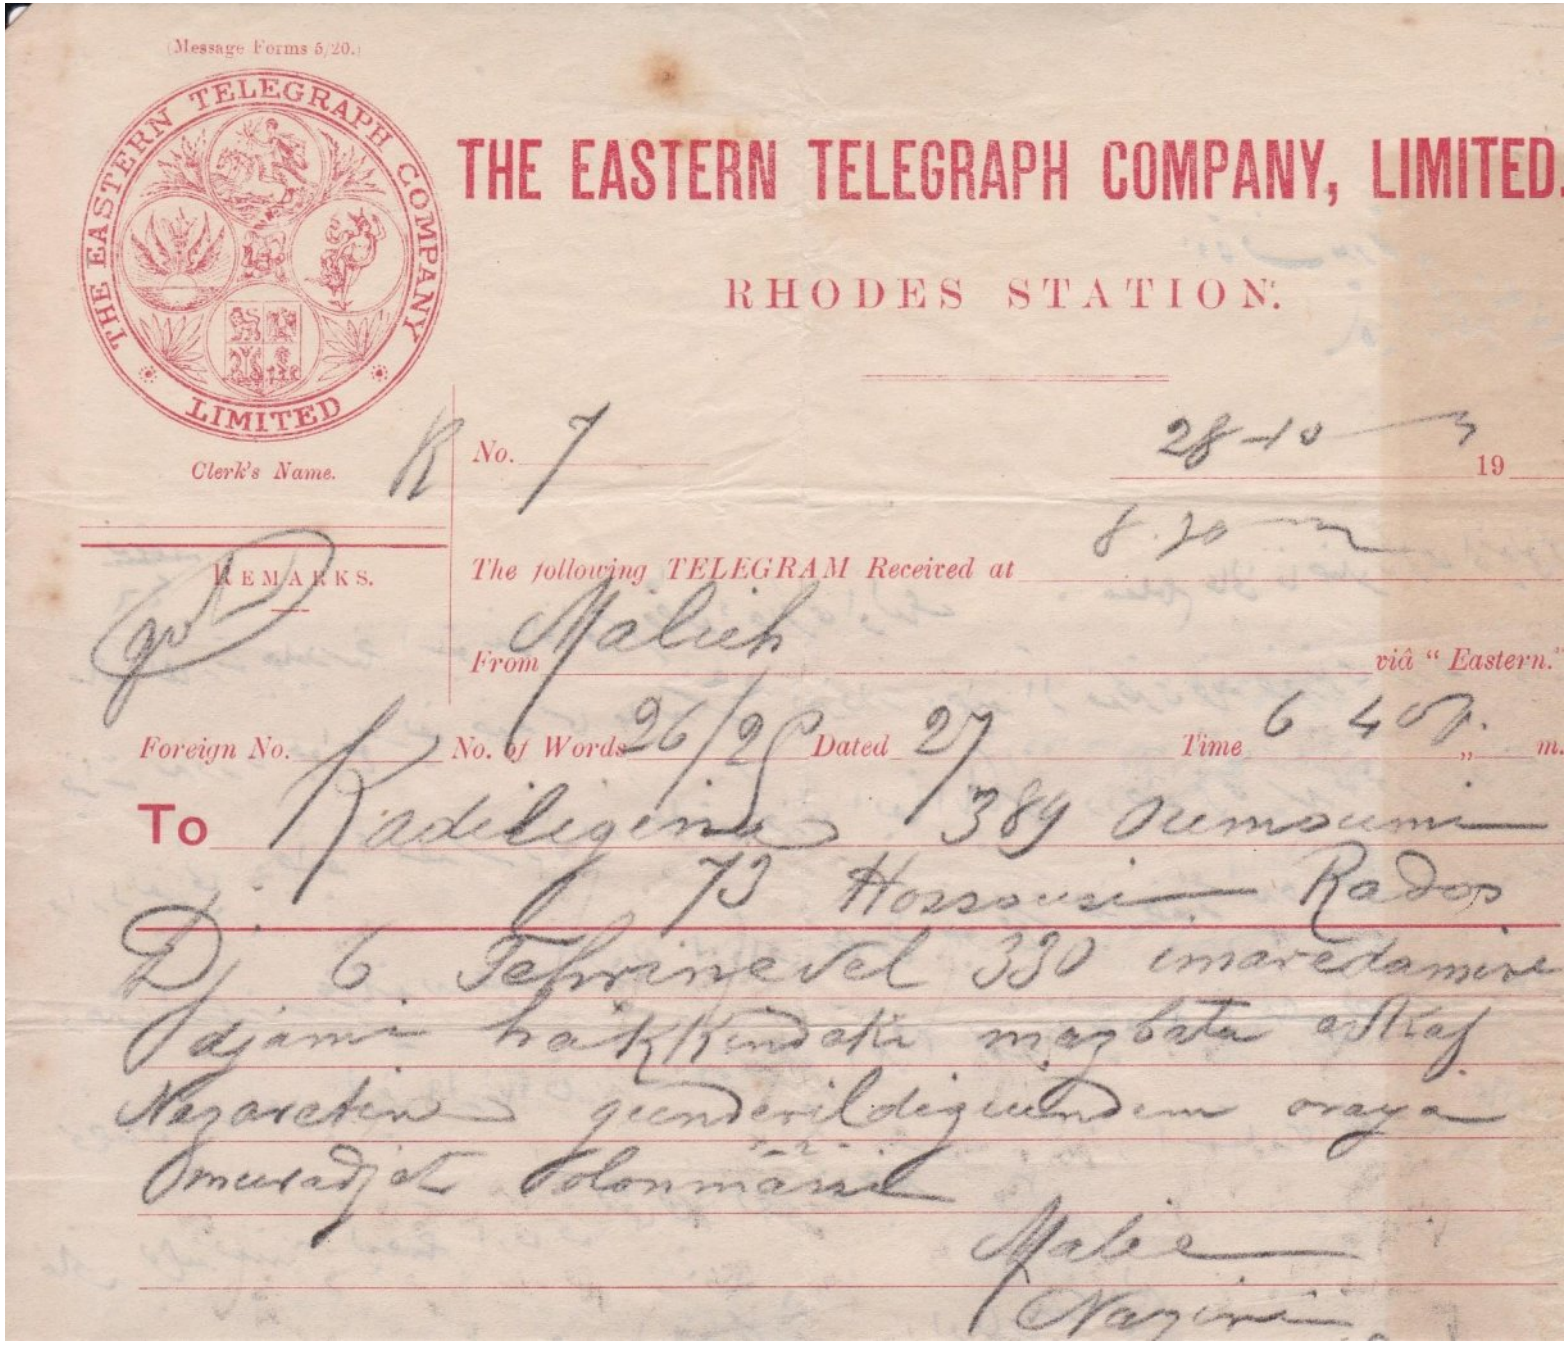 (Message Forms 5/20.)
THE EASTERN TELEGRAPH COMPANY
LIMITED
THE EASTERN TELEGRAPH COMPANY, LIMITED.
RHODES STATION.
Clerk's Name.
R No. 7
28-10
19
REMARKS.
The following TELEGRAM Received at 8.30 m
From Malieh viâ "Eastern."
Foreign No. No. of Words 26/25 Dated 27 Time 6 40 p. „ m.
To Kadiligina 389 oumoumi
73 Hossousi Rados
Dj 6 Tehrinevel 330 imaredamire
djami hakkindaki mazbata evkaf
Nazaretin gunderildiguindem oraya
muradjat olonmasi
Malie
Naziri